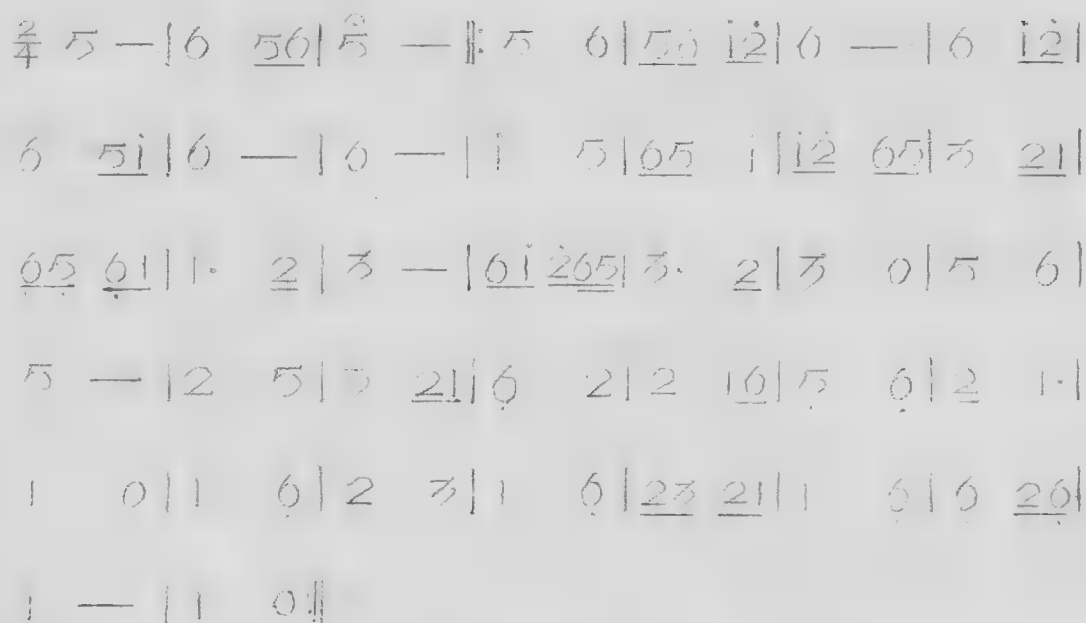 2/4 5 — | 6 56 | 5 — ‖: 5 6 | 56 i̇2̇ | 6 — | 6 i̇2̇ |
6 5i̇ | 6 — | 6 — | i̇ 5 | 65 i | i̇2̇ 65 | 3 21 |
6̣5̣ 6̣1 | 1· 2 | 3 — | 6i̇ 2̇65 | 3· 2 | 3 0 | 5 6 |
5 — | 2 5 | 3 21 | 6̣ 2 | 2 16̣ | 5̣ 6̣ | 2 1· |
1 0 | 1 6̣ | 2 3 | 1 6̣ | 23 21 | 1 6̣ | 6̣ 26̣ |
1 — | 1 0 :‖